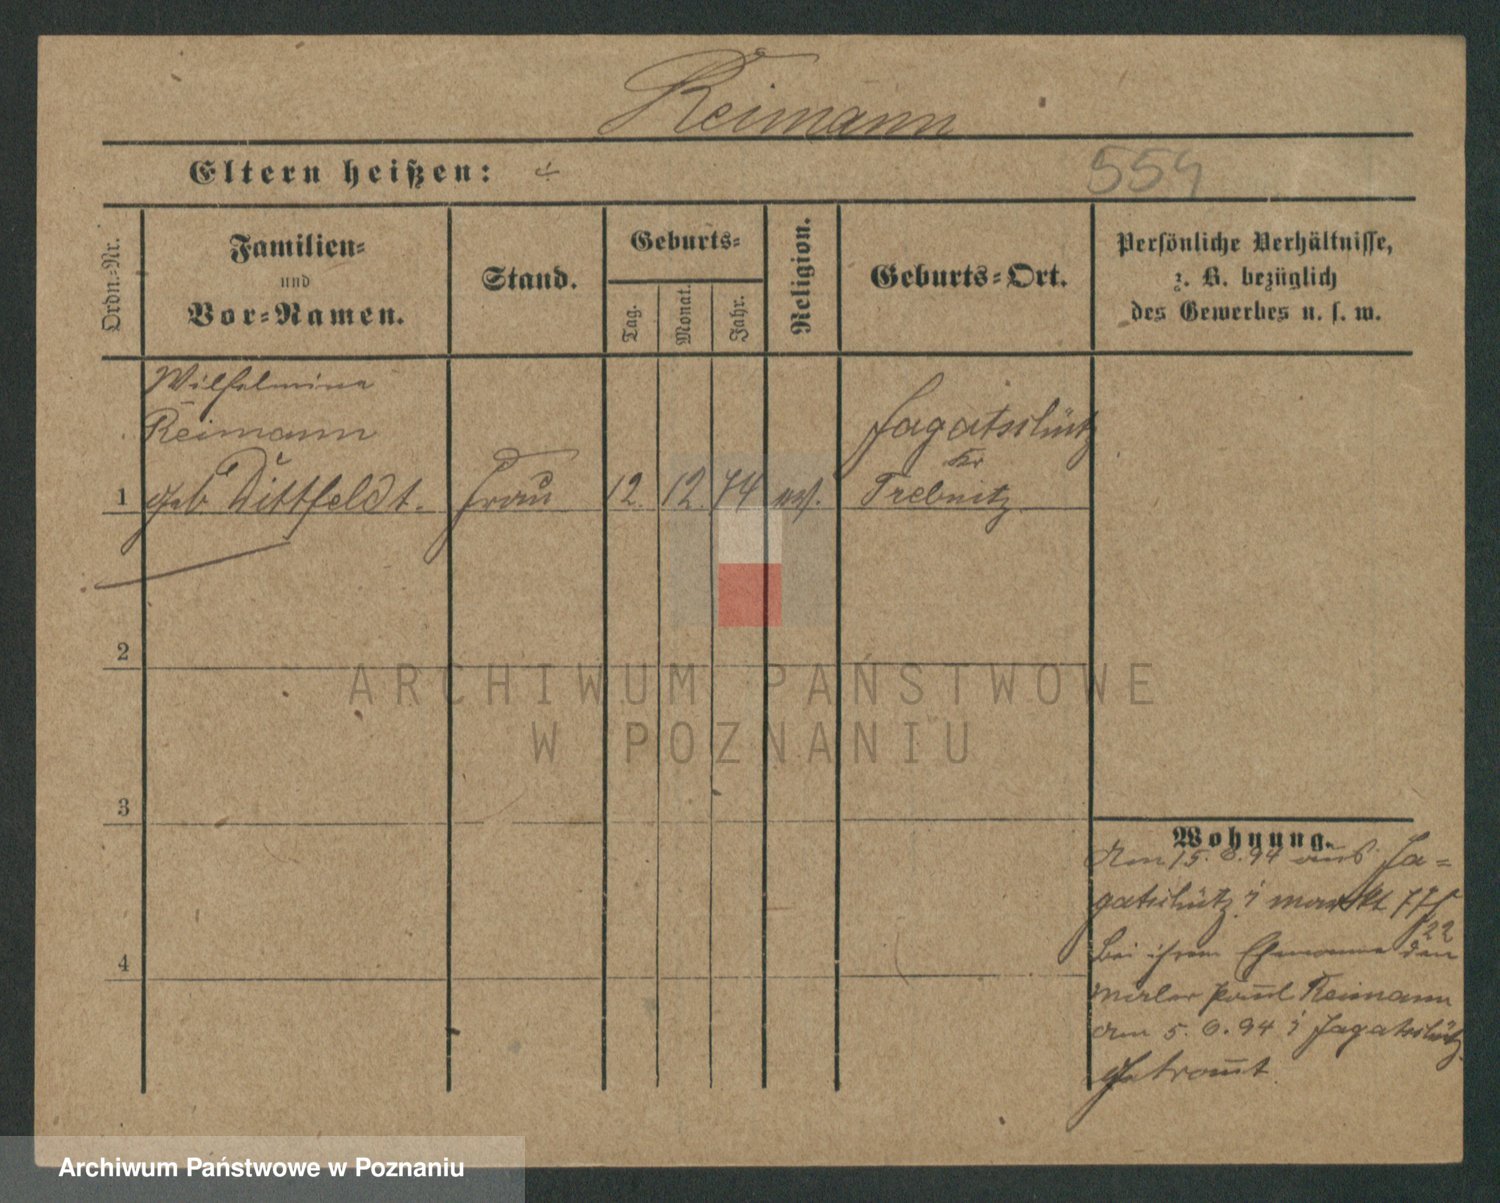 Reimann
Eltern heißen: ÷
554
Ordn.-Nr.
Familien-
und
Vor-Namen.
Stand.
Geburts-
Tag.
Monat.
Jahr.
Religion.
Geburts-Ort.
Persönliche Verhältnisse,
z. B. bezüglich
des Gewerbes u. s. w.
Wilhelmine
Reimann
1 geb Dittfeldt. Frau 12. 12. 74 ev.
Jagatschütz
Kr
Trebnitz
2
3
4
ARCHIWUM PAŃSTWOWE
W POZNANIU
Wohnung.
den 15. 6. 94 aus Ja-
gatschütz i markt 77/
22
bei ihrem Ehemanne den
Maler Paul Reimann
den 5. 6. 94 i Jagatschütz
getraut.
Archiwum Państwowe w Poznaniu